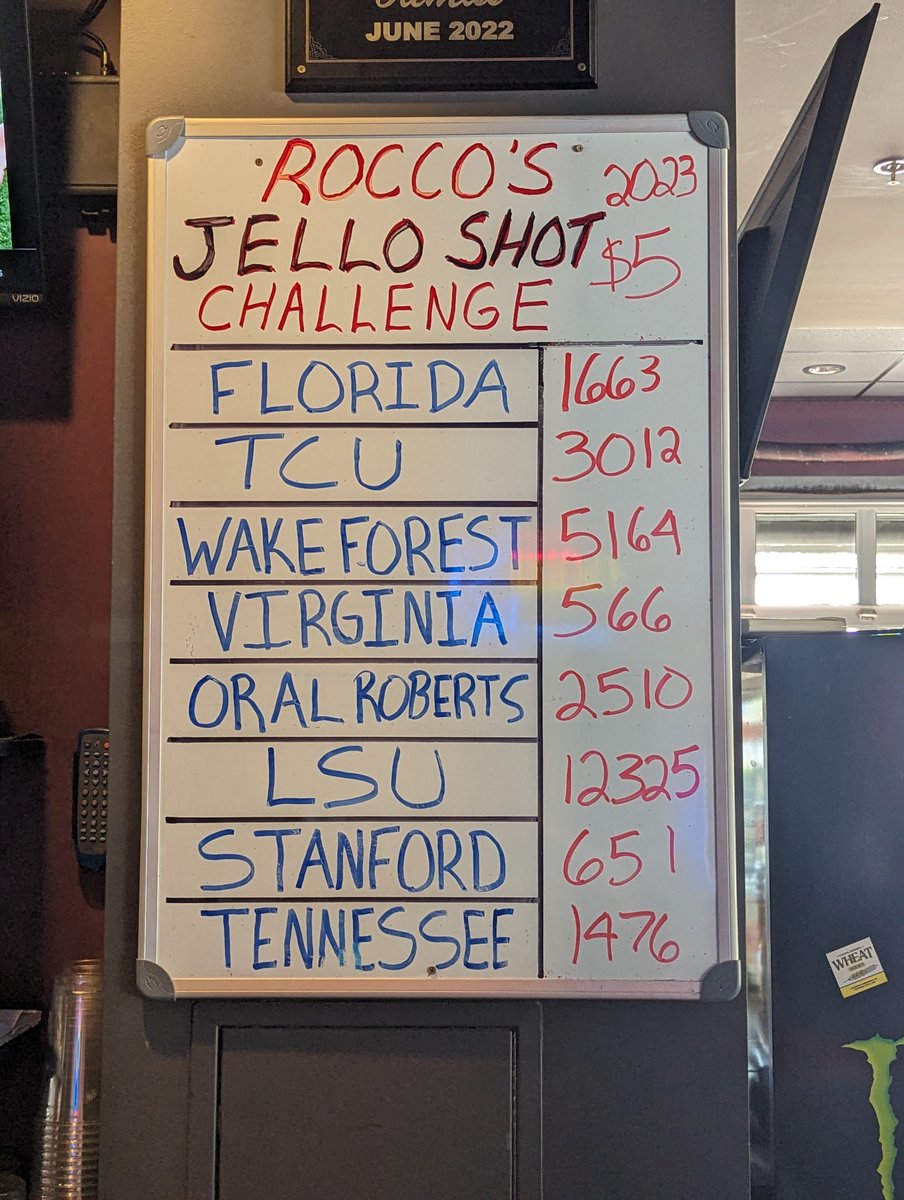 JUNE 2022
ROCCO'S 2023
JELLO SHOT $5
CHALLENGE
FLORIDA 1663
TCU 3012
WAKE FOREST 5164
VIRGINIA 566
ORAL ROBERTS 2510
LSU 12325
STANFORD 651
TENNESSEE 1476
VIZIO
WHEAT